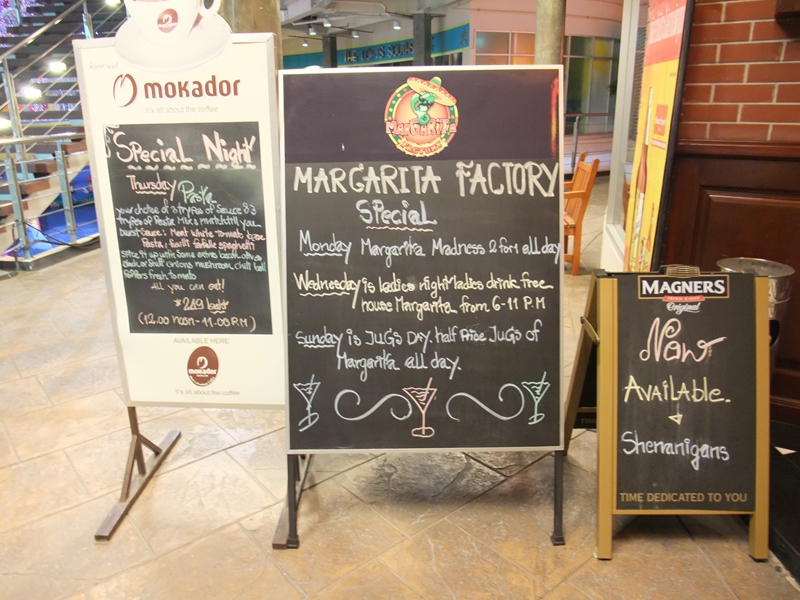 mokador
it's all about the coffee
Special Night
Thursday Pasta
your choice of 3 types of Sauce & 3
types of Pasta Mix & match till you
burst Sauce: Meat white tomato
Pasta: fusilli farfalle spaghetti
spice it up with some extras bacon olives
mushroom chili bell
peppers fresh tomato
All you can eat!
*249 baht
(12.00 noon-11.00 P.M)
AVAILABLE HERE
mokador
it's all about the coffee
MARGARITA
FACTORY
MARGARITA FACTORY
Special
Monday Margarita Madness 2 for 1 all day
Wednesday is ladies night ladies drink free
house Margarita from 6-11 P.M
Sunday is JUGS DAY. half Price JUGS of
Margarita all day.
MAGNERS
Original
Now
Available.
Shenanigans
TIME DEDICATED TO YOU